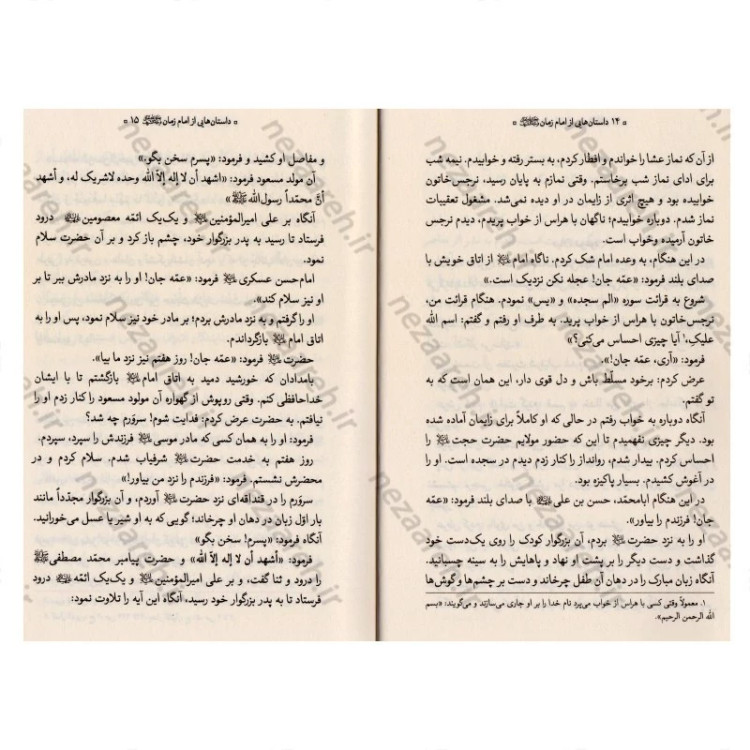 ۱۴ داستان‌هایی از امام زمان ﷺ
از آن که نماز عشا را خواندم و افطار کردم، به بستر رفته و خوابیدم. نیمه شب
برای ادای نماز شب برخاستم. وقتی نمازم به پایان رسید، نرجس‌خاتون
خوابیده بود و هیچ اثری از زایمان در او دیده نمی‌شد. مشغول تعقیبات
نماز شدم. دوباره خوابیدم؛ ناگهان با هراس از خواب پریدم، دیدم نرجس
خاتون آرمیده وخواب است.
در این هنگام، به وعده امام شک کردم. ناگاه امام ﷺ از اتاقی خویش با
صدای بلند فرمود: «عمّه جان! عجله نکن نزدیک است.»
شروع به قرائت سوره «الم سجده» و «یس» نمودم. هنگام قرائت من،
نرجس‌خاتون با هراس از خواب پرید. به طرف او رفتم و گفتم: اسم الله
علیکِ،۱ آیا چیزی احساس می‌کنی؟»
فرمود: «آری، عمّه جان!».
عرض کردم: برخود مسلّط باش و دل قوی دار، این همان است که به
تو گفتم.
آنگاه دوباره به خواب رفتم در حالی که او کاملاً برای زایمان آماده شده
بود. دیگر چیزی نفهمیدم تا این که حضور مولایم حضرت حجت ﷺ را
احساس کردم. بیدار شدم، روانداز را کنار زدم دیدم در سجده است. او را
در آغوش کشیدم. بسیار پاکیزه بود.
در این هنگام ابامحمّد، حسن بن علی ﷺ با صدای بلند فرمود: «عمّه
جان! فرزندم را بیاور».
او را به نزد حضرت ﷺ بردم، آن بزرگوار کودک را روی یک‌دست خود
گذاشت و دست دیگر را بر پشت او نهاد و پاهایش را به سینه چسبانید.
آنگاه زبان مبارک را در دهان آن طفل چرخاند و دست بر چشم‌ها و گوش‌ها
۱. معمولاً وقتی کسی با هراس از خواب می‌پرد نام خدا را بر او جاری می‌سازند و می‌گویند: «بسم
الله الرحمن الرحیم».
داستان‌هایی از امام زمان ﷺ ۱۵
و مفاصل او کشید و فرمود: «پسرم سخن بگو.»
آن مولد مسعود فرمود: «اشهد أن لا إله إلاّ الله وحده لاشریک له، و أشهد
أنّ محمّداً رسول‌الله ﷺ»
آنگاه بر علی امیرالمؤمنین ﷺ و یک‌یک ائمّه معصومین ﷺ درود
فرستاد تا رسید به پدر بزرگوار خود، چشم باز کرد و بر آن حضرت سلام
نمود.
امام‌حسن عسکری ﷺ فرمود: «عمّه جان! او را به نزد مادرش ببر تا بر
او نیز سلام کند».
او را گرفتم و به نزد مادرش بردم؛ بر مادر خود نیز سلام نمود، پس او را به
اتاقی امام ﷺ بازگرداندم.
حضرت ﷺ فرمود: «عمّه جان! روز هفتم نیز نزد ما بیا».
بامدادان که خورشید دمید به اتاقی امام ﷺ بازگشتم تا با ایشان
خداحافظی کنم. وقتی روپوش از گهواره آن مولود مسعود را کنار زدم او را
نیافتم. به حضرت عرض کردم: فدایت شوم! سرورم چه شد؟
فرمود: او را به همان کسی که مادر موسی ﷺ فرزندش را سپرد، سپردم.
روز هفتم به خدمت حضرت ﷺ شرفیاب شدم. سلام کردم و در
محضرش نشستم. فرمود: «فرزندم را نزد من بیاور!»
سرورم را در قنداقه‌ای نزد حضرت ﷺ آوردم، و آن بزرگوار مجدّداً مانند
بار اوّل زبان در دهان او چرخاند؛ گویی که به او شیر یا عسل می‌خورانید.
آنگاه فرمود: «پسرم! سخن بگو»
فرمود: «أشهد أن لا إله إلاّ الله» و حضرت پیامبر محمّد مصطفی ﷺ
را درود و ثنا گفت، و بر علی امیرالمؤمنین ﷺ و یک‌یک ائمّه ﷺ درود
فرستاد تا به پدر بزرگوار خود رسید، آنگاه این آیه را تلاوت نمود:
nezaareh.ir